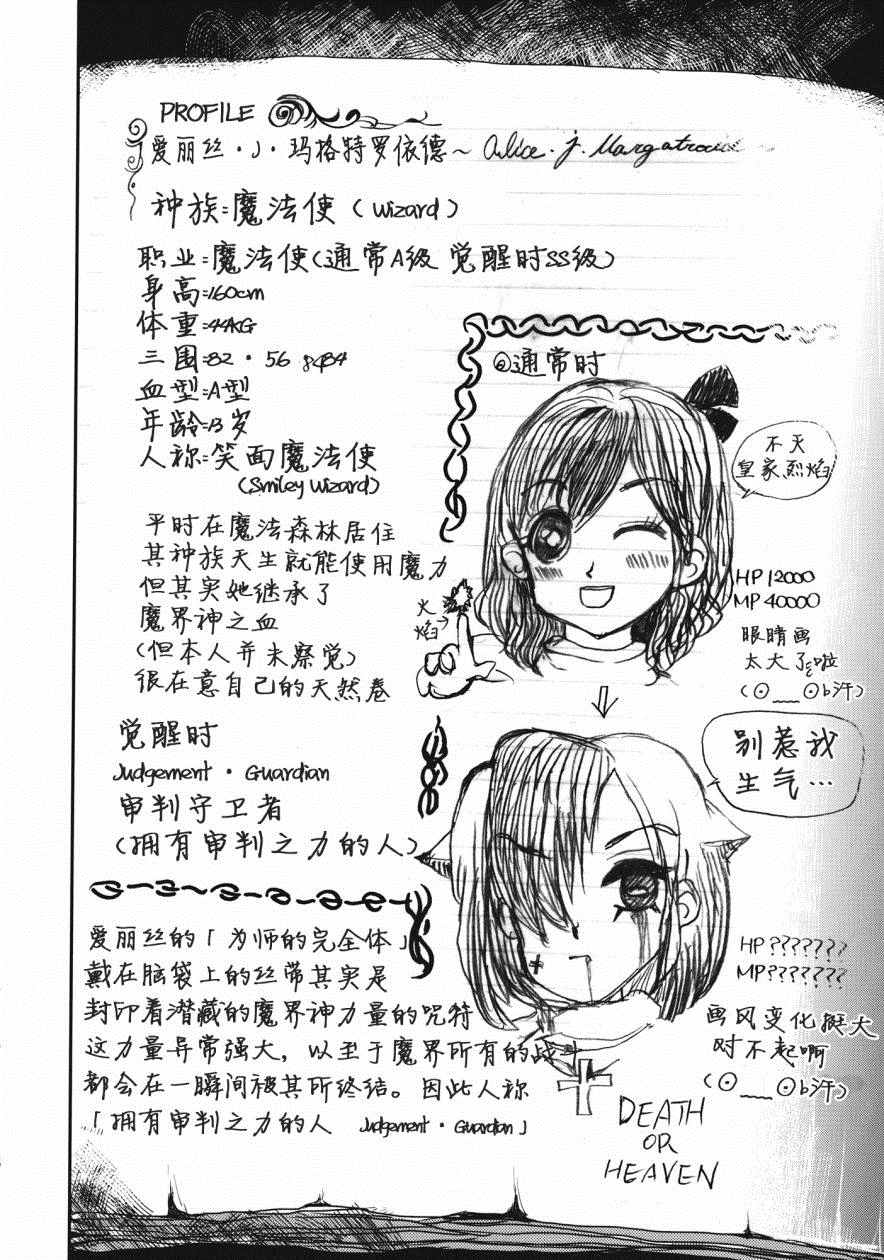 PROFILE
爱丽丝·J·玛格特罗依德~ Alice. J. Margatroid
种族:魔法使(wizard)
职业:魔法使(通常A级 觉醒时SS级)
身高:160cm
体重:44KG
三围:82·56 84
血型:A型
年龄:13岁
人称:笑面魔法使
(Smiley Wizard)
平时在魔法森林居住
其种族天生就能使用魔力
但其实她继承了
魔界神之血
(但本人并未察觉)
很在意自己的天然卷
觉醒时
Judgement·Guardian
审判守卫者
(拥有审判之力的人)
爱丽丝的「为师的完全体」
戴在脑袋上的丝带其实是
封印着潜藏的魔界神力量的咒符
这力量异常强大,以至于魔界所有的战斗
都会在一瞬间被其所终结。因此人称
「拥有审判之力的人 Judgement·Guardian」
◎通常时
不灭
皇家烈焰
火
焰→
HP 12000
MP 40000
眼睛画
太大了啦
(⊙__⊙b汗)
别惹我
生气…
HP ???????
MP???????
画风变化挺大
对不起啊
(⊙__⊙b汗)
DEATH
OR
HEAVEN